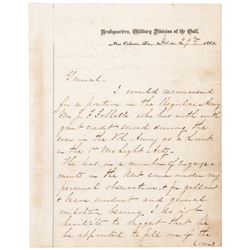 Headquarters, Military Division of the Gulf,
New Orleans, La., Dec 29th 1865
General.
I would recommend
for a position in the Regular Army
Mr J. F.
who has with
great credit served during the
war in the Vol Army as a Lieut
in the 1st
He has in a number of engage-
ments in the West come under my
personal observation, & for gallant
conduct and general
military bearing I do not
hesitate to suggest that he
be appointed to fill one of the
(over)